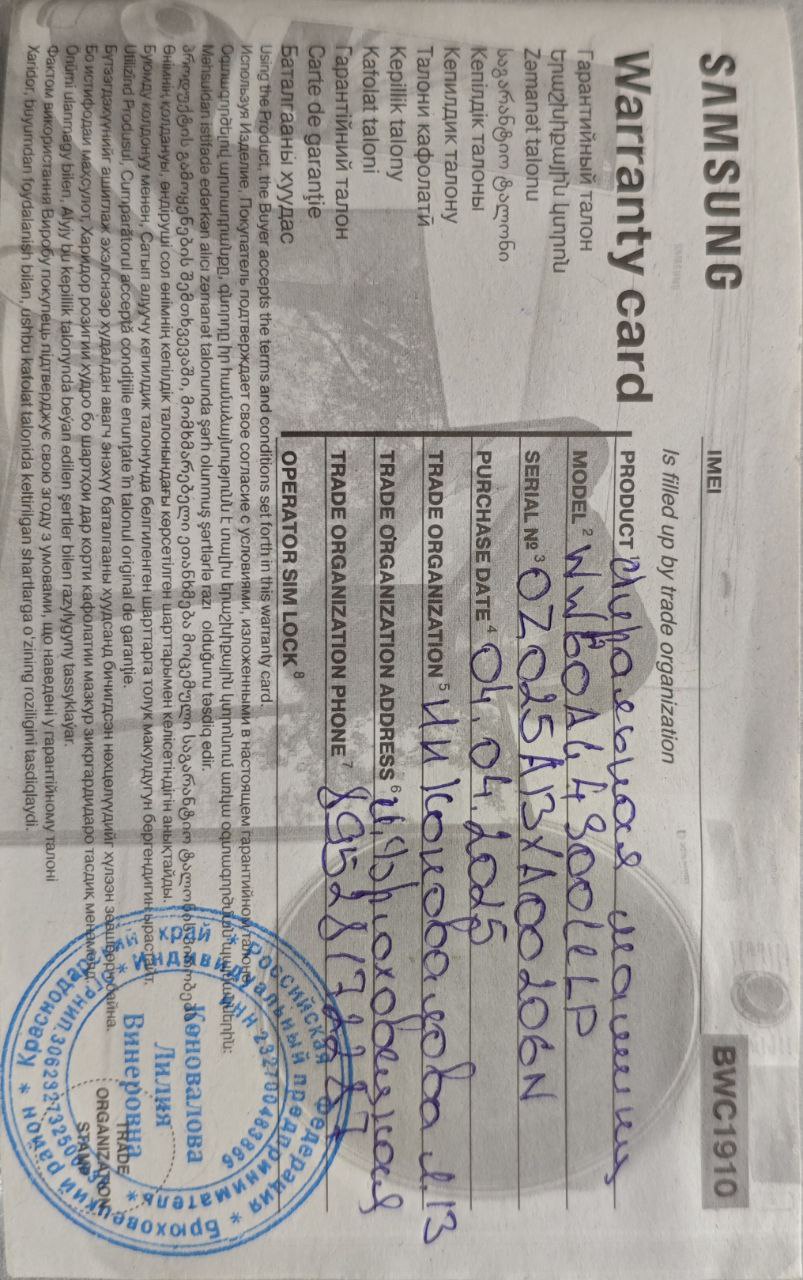 SAMSUNG
IMEI
BWC1910
Warranty card
Is filled up by trade organization
Гарантийный талон
Երաշխիքային կտրոն
Zəmanət talonu
საგარანტიო ტალონი
Кепілдік талоны
Кепилдик талону
Талони кафолатӣ
Kepillik talony
Kafolat taloni
Гарантійний талон
Carte de garanţie
Баталгааны хуудас
PRODUCT 1 Стиральная машина
MODEL 2
SERIAL № 3
PURCHASE DATE 4 04.04.2025
TRADE ORGANIZATION 5 ИП Коновалова Л.
TRADE ORGANIZATION ADDRESS 6
TRADE ORGANIZATION PHONE 7
OPERATOR SIM LOCK 8
Using the Product, the Buyer accepts the terms and conditions set forth in this warranty card.
Используя Изделие, Покупатель подтверждает свое согласие с условиями, изложенными в настоящем гарантийном талоне.
Օգտագործելով արտադրանքը, գնորդը իր համաձայնությունն է տալիս երաշխիքային կտրոնում առկա օգտագործման պայմաններին:
Məhsuldan istifadə edərkən alıcı zəmanət talonunda şərh olunmuş şərtlərlə razı olduğunu təsdiq edir.
პროდუქტის გამოყენების შემთხვევაში, მომხმარებელი ეთანხმება მოცემული საგარანტიო ტალონის პირობებს
Өнімнің қолдануы, өндіруші сол өнімнің кепілдік талонындағы көрсетілген шарттарымен келісетіндігін анықтайды.
Буюмду колдонуу менен, Сатып алуучу кепилдик талонунда белгиленген шарттарга толук макулдугун бергендигин ырастайт.
Utilizind Produsul, Cumparătorul acceptă condiţiile enunţate în talonul original de garanţie.
Бүтээгдэхүүнийг ашиглаж эхэлснээр худалдан авагч энэхүү баталгааны хуудсанд бичигдсэн нөхцөлүүдийг хүлээн зөвшөөрч байна.
Бо истифодаи махсулот, Харидор розигии худро бо шартҳои дар корти кафолатии мазкур зикргардидаро тасдиқ менамояд.
Önümi ulanmagy bilen, Alyjy bu kepillik talonynda beýan edilen şertler bilen razylygyny tassyklaýar.
Фактом використання Виробу покупець підтверджує свою згоду з умовами, що наведені у гарантійному талоні
Xaridor, buyumdan foydalanish bilan, ushbu kafolat talonida keltirilgan shartlarga o'zining roziligini tasdiqlaydi.
TRADE
ORGANIZATION
STAMP
Российская Федерация * Брюховецкий район * Краснодарский край *
Индивидуальный предприниматель * ИНН 232700483866
Коновалова
Лилия
Винеровна